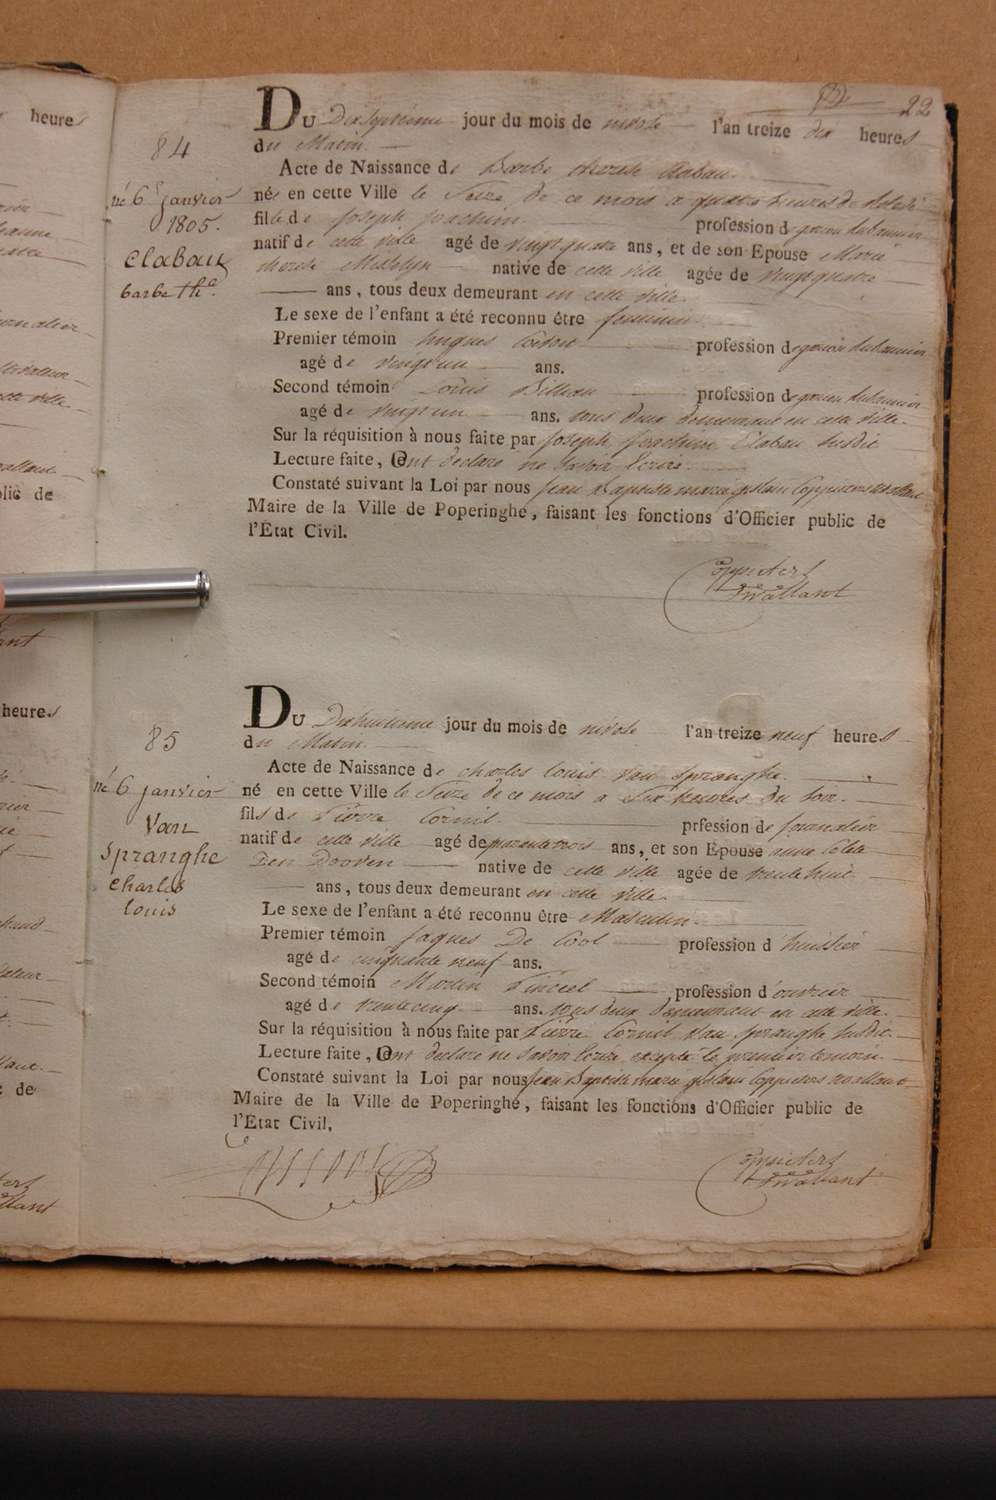 22
84
né 6 janvier
1805.
Clabau
barbe Th.ᵃ
Du Dixseptieme jour du mois de nivose l'an treize dix heures
du Matin.
Acte de Naissance de Barbe therese Clabau.
née en cette Ville le Seize de ce mois a quatre heures de
fille de Joseph Joachim profession de
natif de cette ville agé de vingtquatre ans, et de son Epouse Marie
therese native de cette ville agée de vingtquatre
ans, tous deux demeurant en cette ville.
Le sexe de l'enfant a été reconnu être feminin.
Premier témoin hugues profession de
agé de vingtun ans.
Second témoin Louis Billiau profession de
agé de vingtun ans. tous deux demeurant en cette ville.
Sur la réquisition à nous faite par Joseph Joachim Clabau susdit
Lecture faite, Ont declaré ne savoir Ecrire.
Constaté suivant la Loi par nous Jean Baptiste marie gislain Coppieters
Maire de la Ville de Poperinghe, faisant les fonctions d'Officier public de
l'État Civil.
Coppieters
85
né 6 janvier
Van
Spranghe
Charles
louis
Du Dixhuitieme jour du mois de nivose l'an treize neuf heures
du Matin.
Acte de Naissance de charles louis van Spranghe.
né en cette Ville le Seize de ce mois a Six heures du soir.
fils de Pierre Cornil. prfession de journalier
natif de cette ville agé de quarentetrois ans, et son Épouse anne
Den Dooven native de cette ville agée de trentehuit
ans, tous deux demeurant en cette ville.
Le sexe de l'enfant a été reconnu être Masculin.
Premier témoin Jaques De Cool profession d'huissier
agé de cinquante neuf ans.
Second témoin Martin profession d'ouvrier
agé de trentecinq ans. tous deux demeurant en cette ville.
Sur la réquisition à nous faite par Pierre Cornil van Spranghe susdit.
Lecture faite, Ont declaré ne savoir Ecrire excepté le premier temoin.
Constaté suivant la Loi par nous Jean Baptiste marie gislain Coppieters
Maire de la Ville de Poperinghe, faisant les fonctions d'Officier public de
l'État Civil,
Coppieters